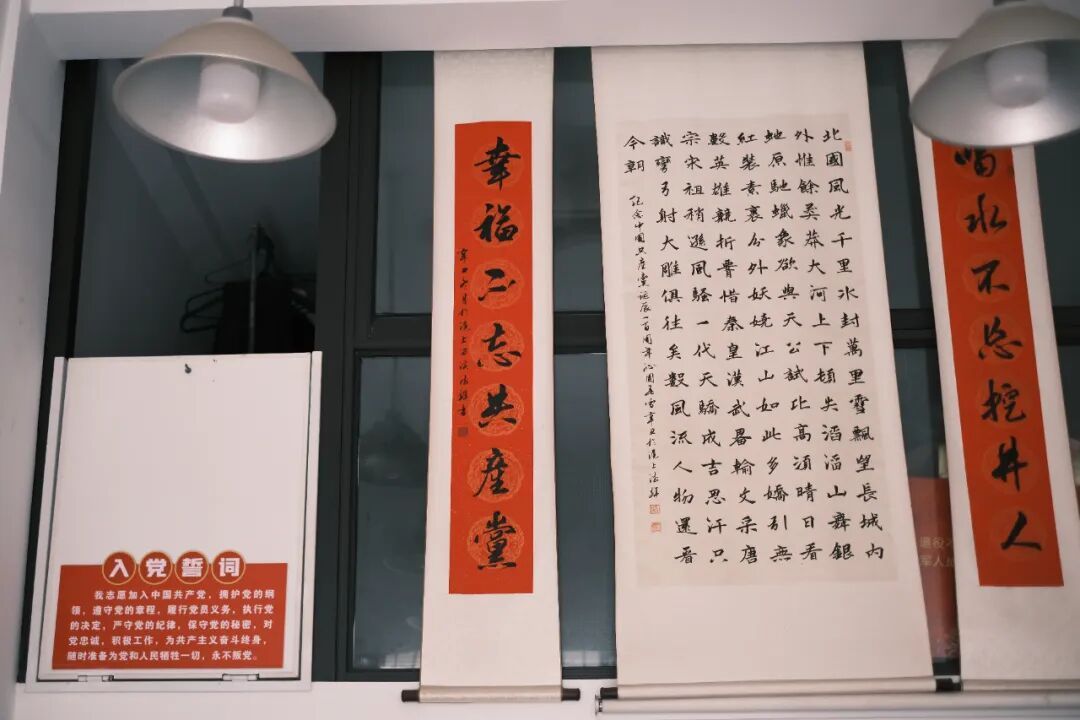 喝水不忘挖井人
北國風光千里冰封萬里雪飄望長城內
外惟餘莽莽大河上下頓失滔滔山舞銀
蛇原馳蠟象欲與天公試比高須晴日看
紅裝素裹分外妖嬈江山如此多嬌引無
數英雄競折腰惜秦皇漢武略輸文采唐
宗宋祖稍遜風騷一代天驕成吉思汗只
識彎弓射大雕俱往矣數風流人物還看
今朝
記念中國共產黨誕辰一百周年沁園春雪辛丑於滬上
幸福不忘共產黨
入党誓词
我志愿加入中国共产党，拥护党的纲
领，遵守党的章程，履行党员义务，执行党
的决定，严守党的纪律，保守党的秘密，对
党忠诚，积极工作，为共产主义奋斗终身，
随时准备为党和人民牺牲一切，永不叛党。
退役
军人